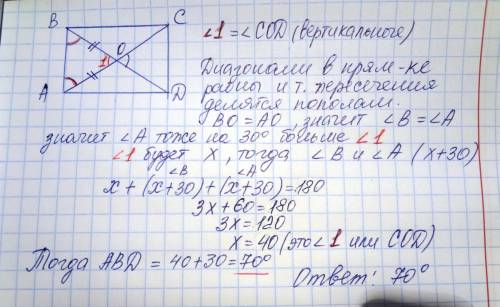 B C
O
1
A D
∠1 = ∠COD (вертикальные)
Диагонали в прям-ке
равны и т. пересечения
делятся пополам.
BO = AO, значит ∠B = ∠A
значит ∠A тоже на 30° больше ∠1
∠1 будет x, тогда ∠B и ∠A (x+30)
∠B ∠A
x + (x+30) + (x+30) = 180
3x + 60 = 180
3x = 120
x = 40 (это ∠1 или COD)
Тогда ABD = 40 + 30 = 70°
Ответ: 70°